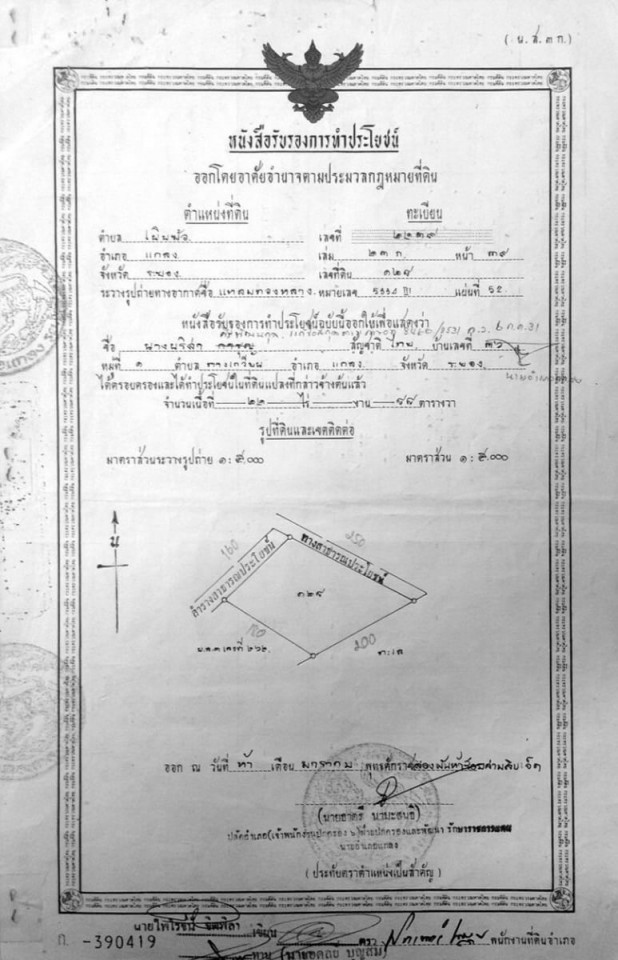 (น.ส.๓ ก.)
หนังสือรับรองการทำประโยชน์
ออกโดยอาศัยอำนาจตามประมวลกฎหมายที่ดิน
ตำแหน่งที่ดิน ทะเบียน
ตำบล เนินฆ้อ เลขที่ ๒๒๓๙
อำเภอ แกลง เล่ม ๒๓ ก. หน้า ๓๙
จังหวัด ระยอง เลขที่ดิน ๑๒๔
ระวางรูปถ่ายทางอากาศชื่อ แหลมทองหลาง หมายเลข 5334 III แผ่นที่ ๖๕
หนังสือรับรองการทำประโยชน์ฉบับนี้ออกให้เพื่อแสดงว่า
ชื่อ สัญชาติ ไทย บ้านเลขที่ ๓๖
หมู่ที่ ๑ ตำบล ทางเกวียน อำเภอ แกลง จังหวัด ระยอง
ได้ครอบครองและได้ทำประโยชน์ในที่ดินแปลงที่กล่าวข้างต้นแล้ว
จำนวนเนื้อที่ ๒๒ ไร่ - งาน ๙๘ ตารางวา
รูปที่ดินและเขตติดต่อ
มาตราส่วนระวางรูปถ่าย ๑ : ๕,๐๐๐ มาตราส่วน ๑ : ๕,๐๐๐
น
160 ลำรางสาธารณประโยชน์
250 ทางสาธารณประโยชน์
๑๒๔
200
น.ส.๓ เลขที่ ๒๖๒ ทะเล
ออก ณ วันที่ ห้า เดือน มกราคม พุทธศักราชสองพันห้าร้อยสามสิบเอ็ด
ปลัดอำเภอ(เจ้าพนักงานปกครอง ๖)ฝ่ายปกครองและพัฒนา รักษาราชการแทน
นายอำเภอแกลง
(ประทับตราตำแหน่งเป็นสำคัญ)
นายไพโรจน์ เขียน
ตรวจ พนักงานที่ดินอำเภอ
ก. -390419
ทาน